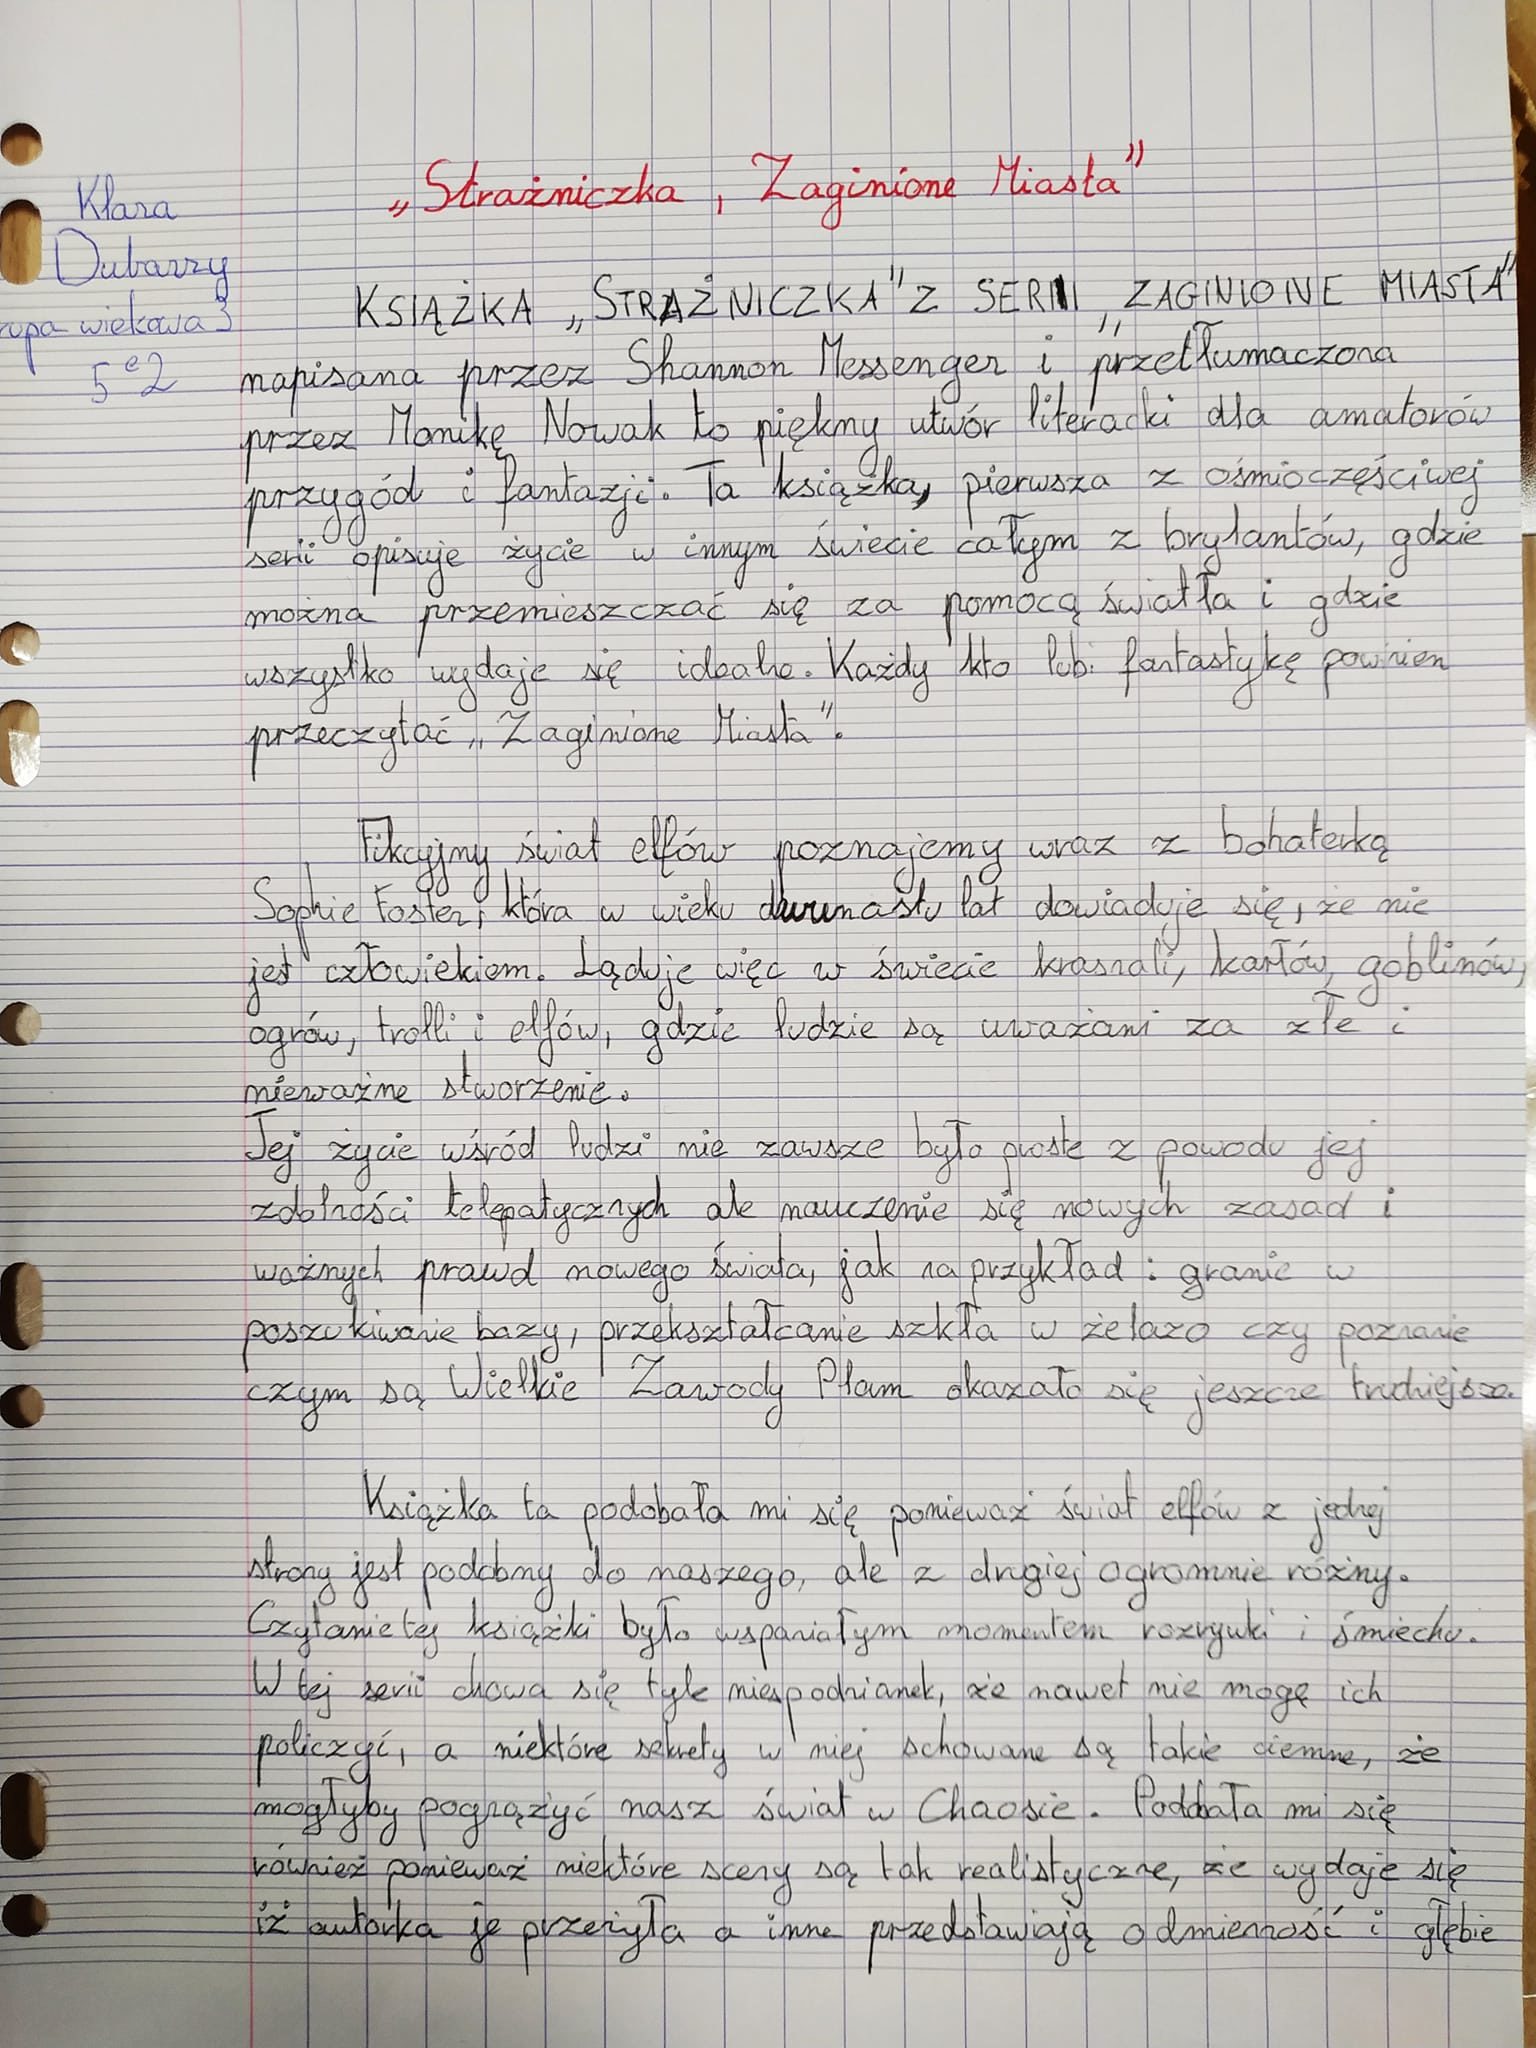 „Strażniczka, Zaginione Miasta"
Klara
Dubarry
rupa wiekowa 3
5e2
KSIĄŻKA „STRAŻNICZKA" Z SERII „ZAGINIONE MIASTA"
napisana przez Shannon Messenger i przetłumaczona
przez Monikę Nowak to piękny utwór literacki dla amatorów
przygód i fantazji. Ta książka, pierwsza z ośmioczęściwej
serii opisuje życie w innym świecie całym z brylantów, gdzie
można przemieszczać się za pomocą światła i gdzie
wszystko wydaje się idealne. Każdy kto lubi fantastykę powinien
przeczytać „Zaginione Miasta".
Fikcyjny świat elfów poznajemy wraz z bohaterką
Sophie Foster, która w wieku dwunastu lat dowiaduje się, że nie
jest człowiekiem. Ląduje więc w świecie krasnali, karłów, goblinów,
ogrów, trolli i elfów, gdzie ludzie są uważani za złe i
nieważne stworzenie.
Jej życie wśród ludzi nie zawsze było proste z powodu jej
zdolności telepatycznych ale nauczenie się nowych zasad i
ważnych prawd nowego świata, jak na przykład : granie w
poszukiwanie bazy, przekształcanie szkła w żelazo czy poznanie
czym są Wielkie Zawody Plam okazało się jeszcze trudniejsze.
Książka ta podobała mi się ponieważ świat elfów z jednej
strony jest podobny do naszego, ale z drugiej ogromnie różny.
Czytanie tej książki było wspaniałym momentem rozrywki i śmiechu.
W tej serii chowa się tyle niespodzianek, że nawet nie mogę ich
policzyć, a niektóre sekrety w niej schowane są takie ciemne, że
mogłyby pogrążyć nasz świat w Chaosie. Podobała mi się
również ponieważ niektóre sceny są tak realistyczne, że wydaje się
iż autorka je przeżyła a inne przedstawiają odmienność i głębie